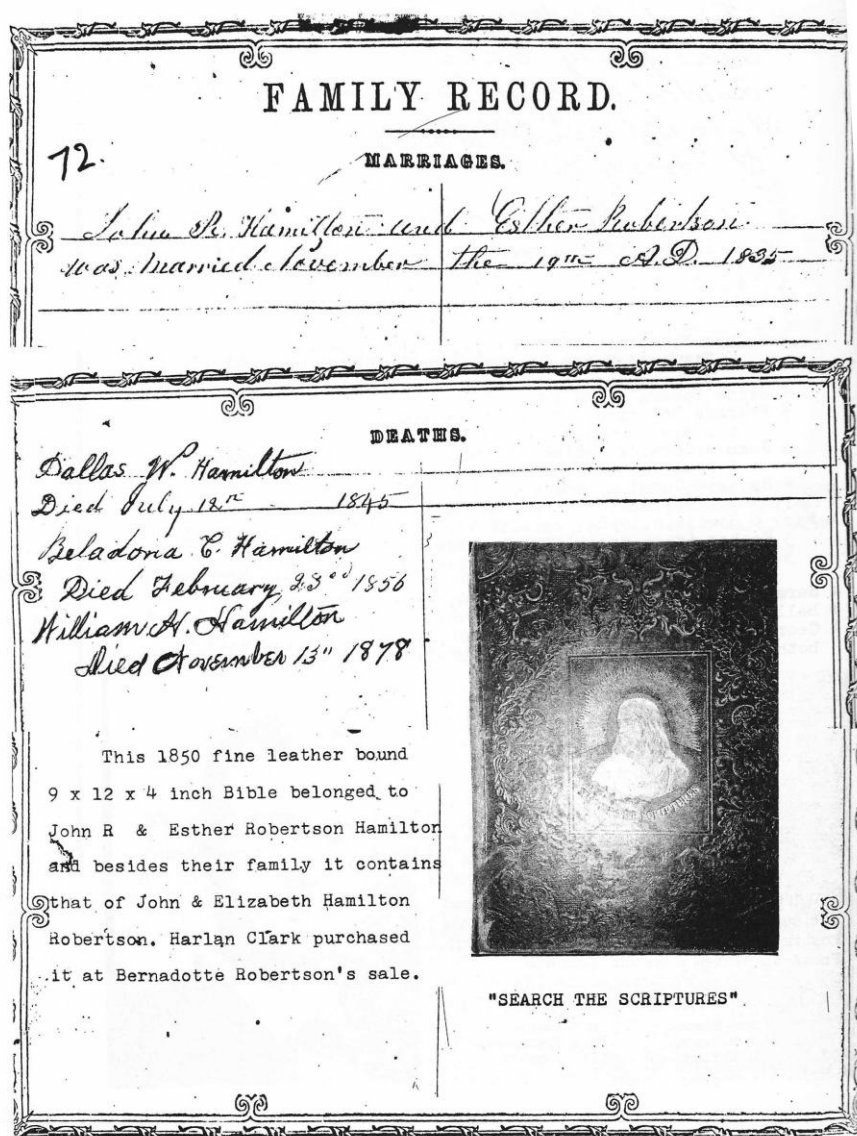 FAMILY RECORD.
72.
MARRIAGES.
John R. Hamilton and Esther Robertson
was married November the 19th A.D. 1835
DEATHS.
Dallas W. Hamilton
Died July 12th 1845
Beladona C. Hamilton
Died February 23rd 1856
William H. Hamilton
Died November 13" 1878
This 1850 fine leather bound
9 x 12 x 4 inch Bible belonged to
John R & Esther Robertson Hamilton
and besides their family it contains
that of John & Elizabeth Hamilton
Robertson. Harlan Clark purchased
it at Bernadotte Robertson's sale.
SCRIPTURES
"SEARCH THE SCRIPTURES"